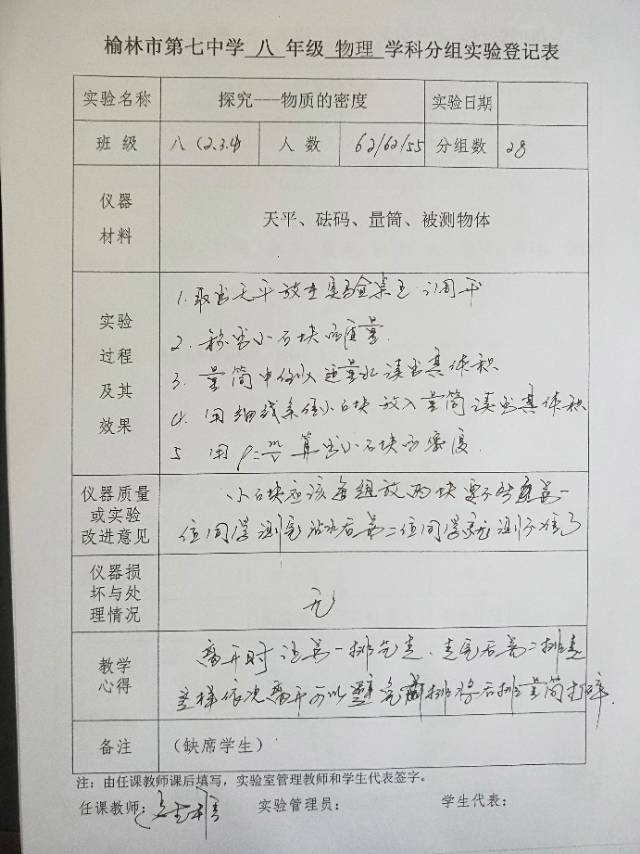 榆林市第七中学 八 年级 物理 学科分组实验登记表
实验名称 探究---物质的密度 实验日期
班 级 八(2.3.4) 人 数 62/62/55 分组数 28
仪器
材料
天平、砝码、量筒、被测物体
实验
过程
及其
效果
1.取出天平放在实验桌上,调平
2.称出小石块的质量.
3.量筒中倒入适量水读出其体积
4.用细线系住小石块放入量筒读出其体积
5 用ρ=m/v算出小石块的密度.
仪器质量
或实验
改进意见
小石块应该每组放两块要不然第一
位同学测完沾水后第二位同学就测不准了
仪器损
坏与处
理情况
无
教学
心得
离开时让第一排先走.走完后第二排走
这样依次离开可以避免前排将后排量筒打碎.
备注 (缺席学生)
注:由任课教师课后填写,实验室管理教师和学生代表签字。
任课教师: 实验管理员: 学生代表: